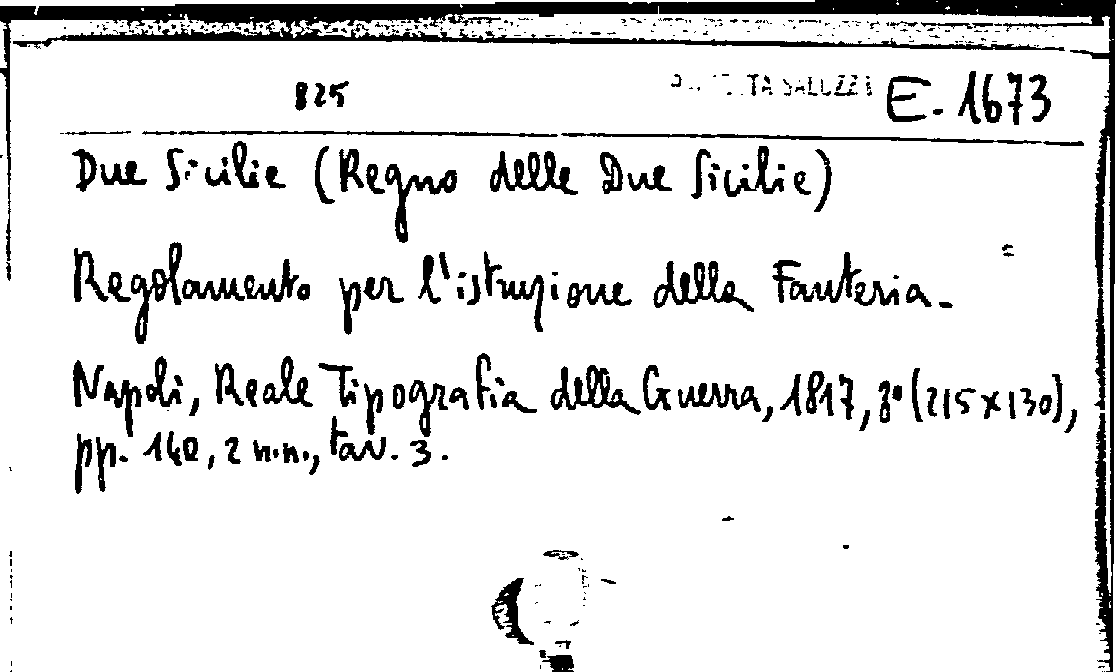 825 SALUZZO E. 1673
Due Sicilie (Regno delle Due Sicilie)
Regolamento per l'istruzione della Fanteria.
Napoli, Reale Tipografia della Guerra, 1817, 8° (215 x 130),
pp. 140, 2 n.n., tav. 3.